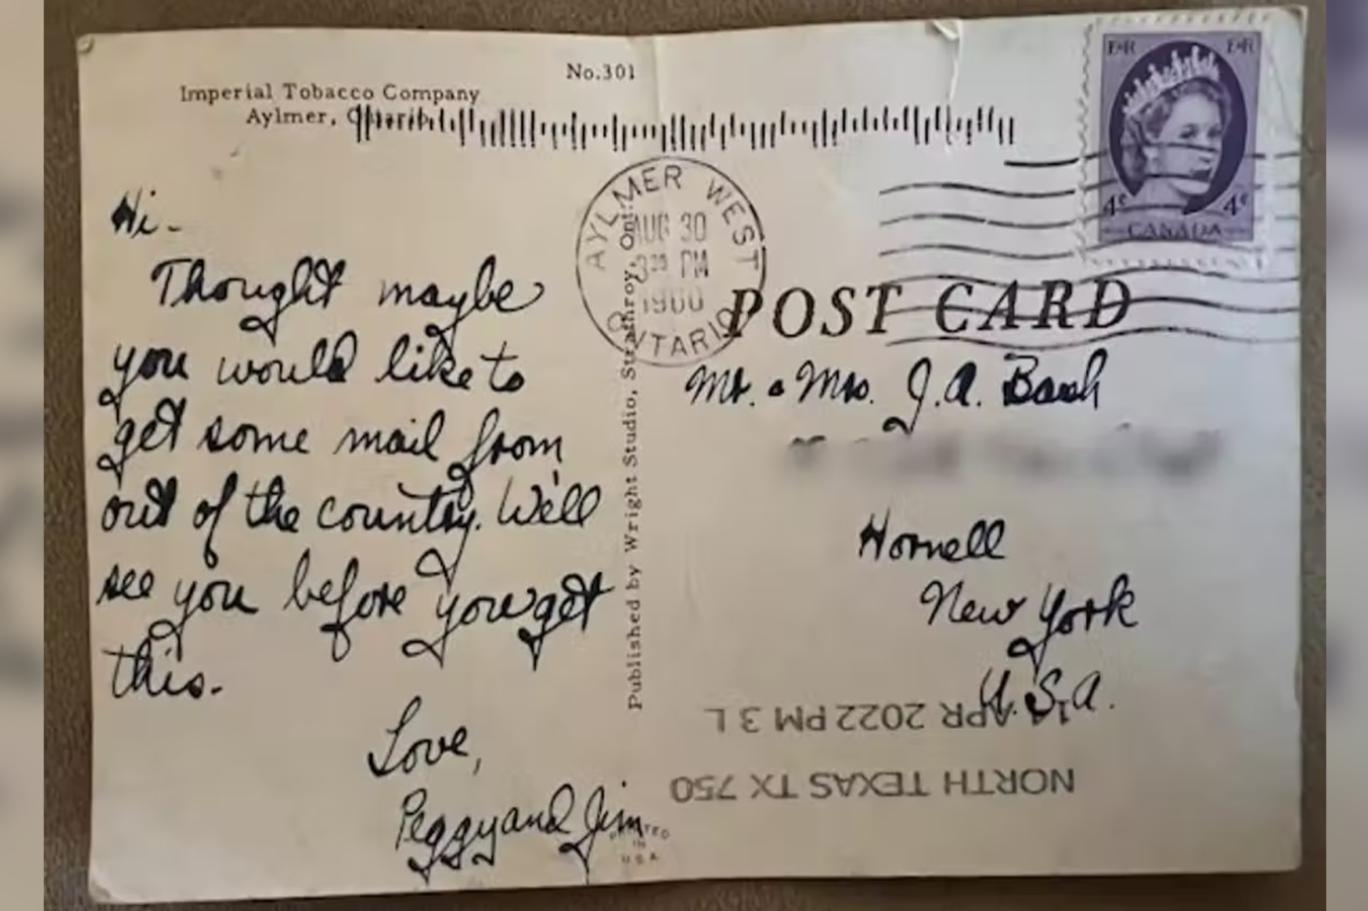 No.301
Imperial Tobacco Company
Aylmer, Ontario
Hi-
Thought maybe
you would like to
get some mail from
out of the country. We'll
see you before you get
this.
Love,
Peggy and Jim
Published by Wright Studio, Strathroy, Ont.
PRINTED
IN
U.S.A.
E II R E II R
4¢ 4¢
CANADA
AYLMER WEST
AUG 30
PM
1960
ONTARIO
POST CARD
Mr. & Mrs. J.A.
Hornell
New York
U.S.A.
NORTH TEXAS TX 750
APR 2022 PM 3 L